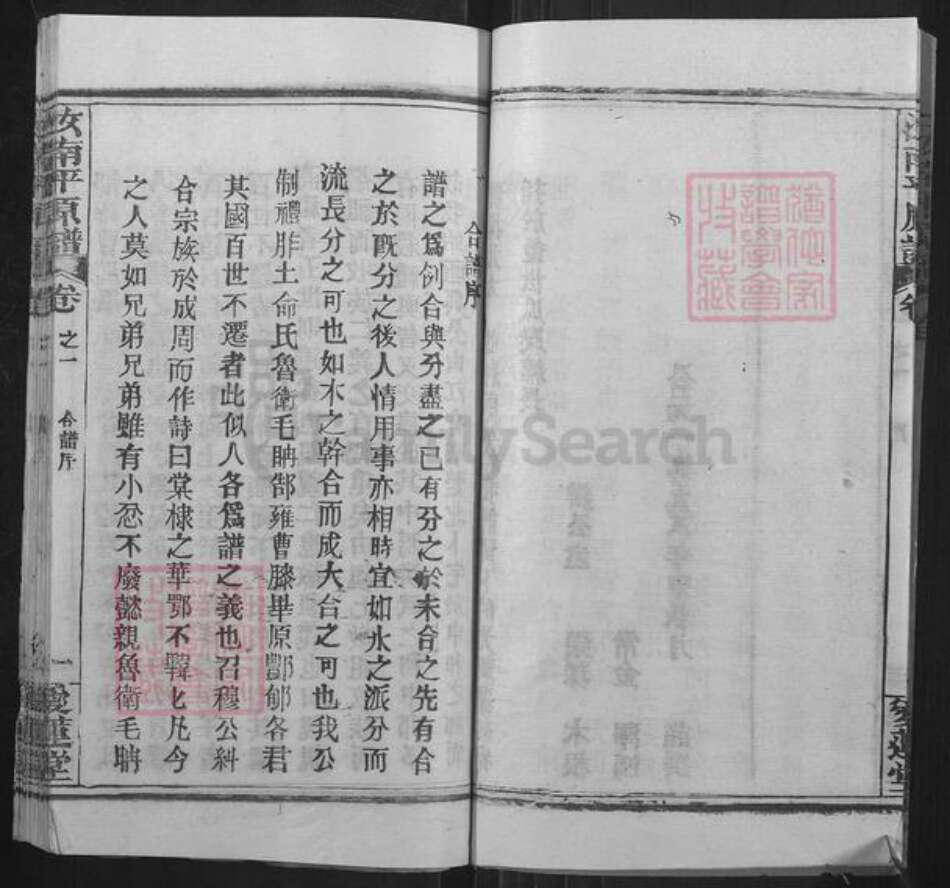 合譜序
譜之爲例合與分盡之已有分之於未合之先有合
之於既分之後人情用事亦相時宜如水之派分而
流長分之可也如木之幹合而成大合之可也我公
制禮胙土命氏魯衛毛聃郜雍曹滕畢原酆郇各君
其國百世不遷者此似人各爲譜之義也召穆公糾
合宗族於成周而作詩曰棠棣之華鄂不韡韡凡今
之人莫如兄弟兄弟雖有小忿不廢懿親魯衛毛聃
汝南平原譜 卷之一 合譜序 一 愛蓮堂
汝南平原譜 卷 愛蓮堂
猶他家譜學會收藏
FamilySearch